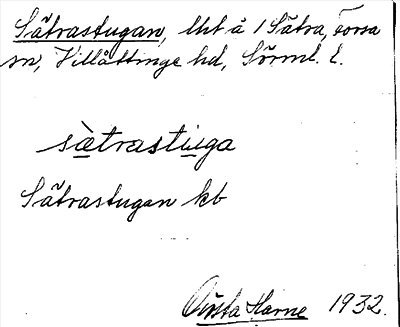 Sätrastugan, lht å 1 Sätra, Torsa
sn, Villåttinge hd, Sörml. l.
sàtrastuga
Sätrastugan kb
Harne 1932.